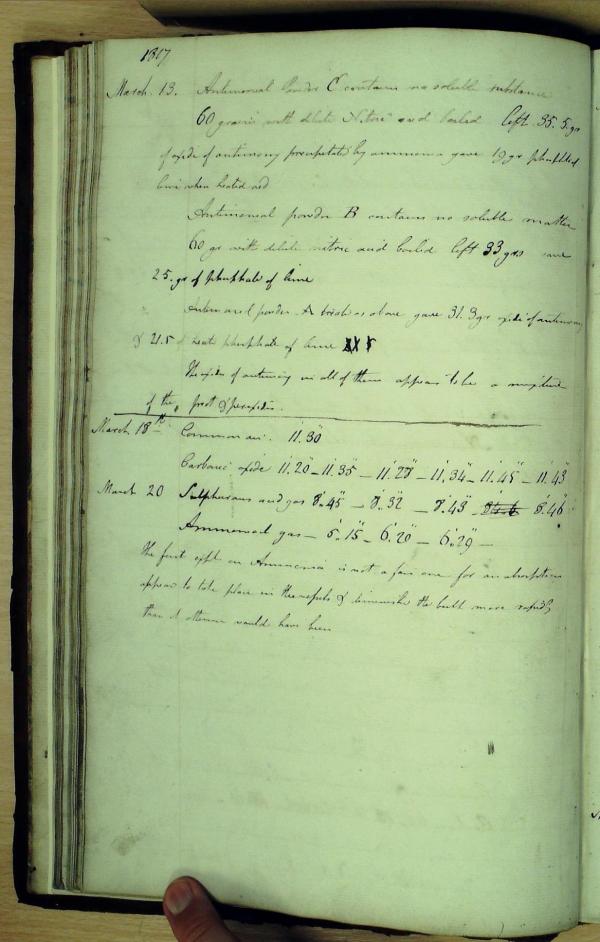 1817
March. 13. Antimonial Powder C contains no soluble substance
60 grains with dilute Nitric acid boiled left 35.5 grs
of oxide of antimony precipitated by ammonia gave 19 grs phosphate of
lime when heated red
Antimonial powder B contains no soluble matter
60 gr with dilute nitric acid boiled left 33 grs gave
25. gr of phosphate of lime
Antimonial powder A treated as above gave 31.3 grs oxide of antimony
& 21.5 of phosphate of lime
The oxides of antimony in all of them appears to be a mixture
of the prot & peroxides.
March 18th Common air. 11'.30"
Carbonic oxide 11'.20" – 11'.35" – 11'.28" – 11'.34" – 11'.45" – 11'.43"
March 20 Sulphurous acid gas 8'.45" – 8'.32" – 8'.43" – 8'.46"
Ammoniacal gas – 6'.15" – 6'.20" – 6'.29" –
The first expt on Ammonia is not a fair one for an absorption
appears to take place in the vessels & diminishes the bulk more rapidly
than it otherwise would have been